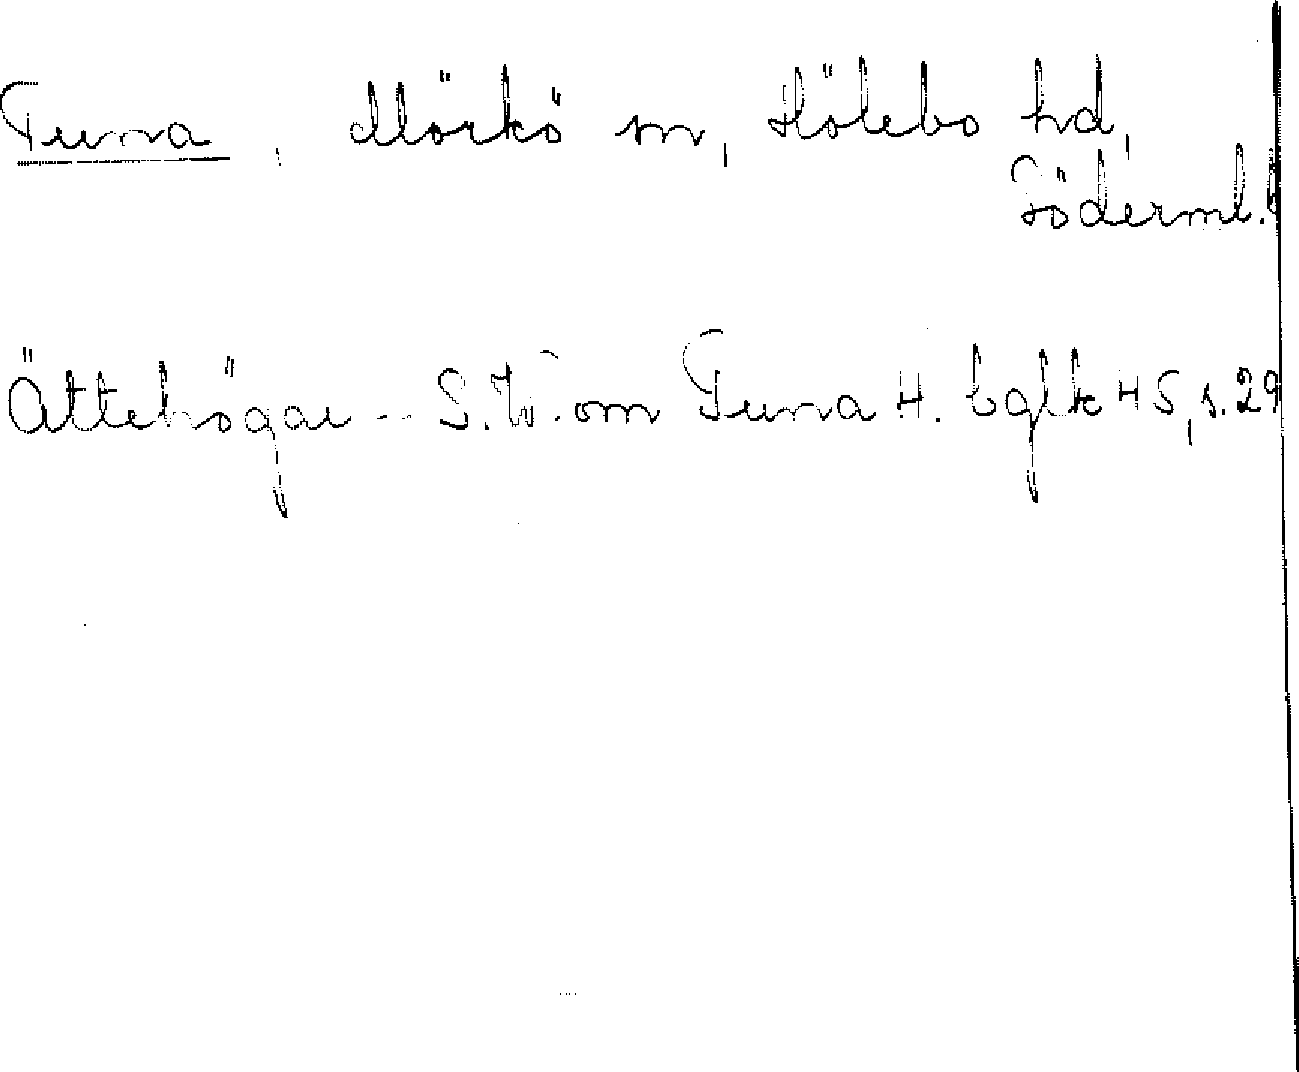 Tuna, Mörkö sn, Hölebo hd,
Söderml.
Ättehögar -- S.V. om Tuna H. bglk H5, s. 29